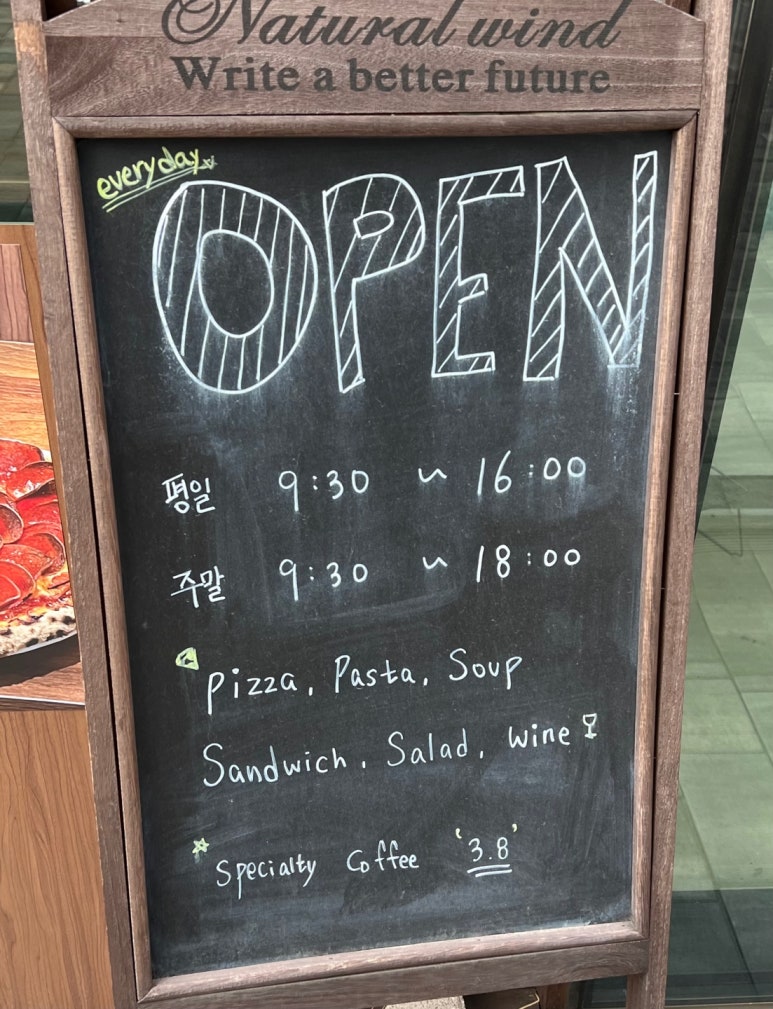 Natural wind
Write a better future
everyday
OPEN
평일 9:30 ~ 16:00
주말 9:30 ~ 18:00
Pizza, Pasta, Soup
Sandwich, Salad, wine
Specialty Coffee '3.8'